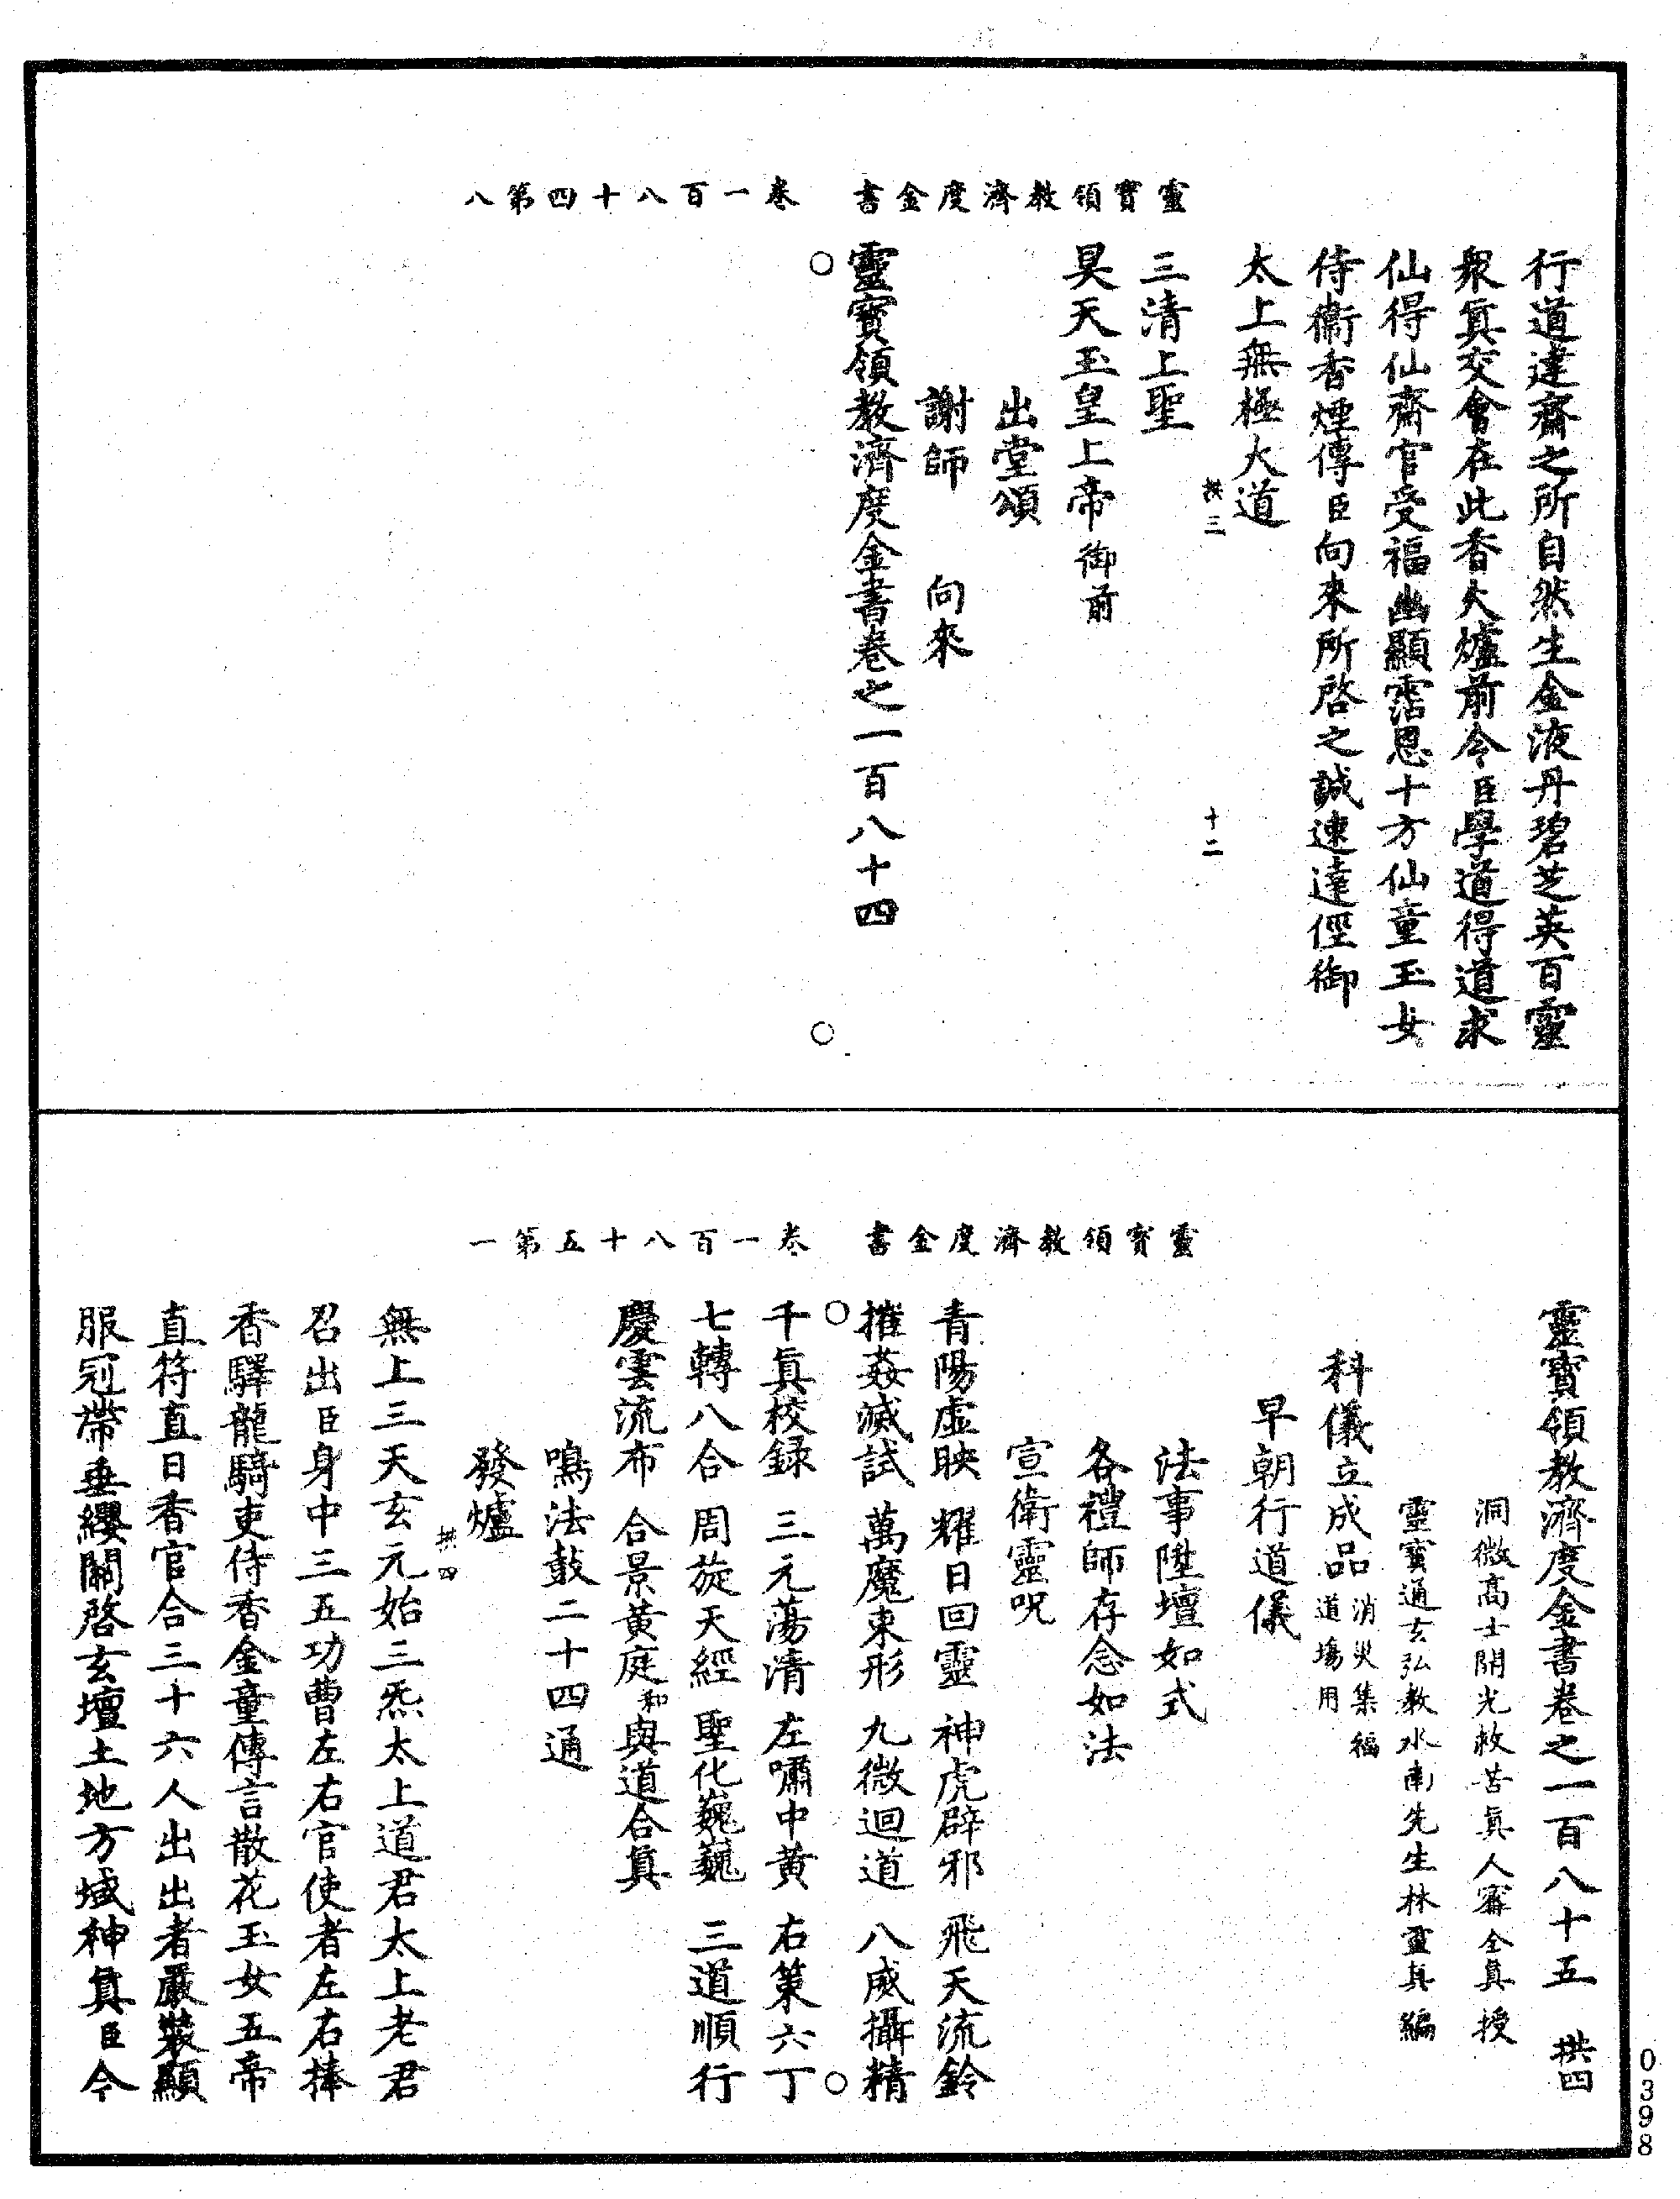 靈寶領教濟度金書　卷一百八十四第八
行道達齋之所自然生金液丹碧芝英百靈
衆眞交會在此香火爐前令臣學道得道求
仙得仙齋官受福幽顯霑恩十方仙童玉女
侍衞香煙傳臣向來所啓之誠速達徑御
太上無極大道
拱三　十二
三清上聖
昊天玉皇上帝御前
出堂頌
謝師　向來
靈寶領教濟度金書卷之一百八十四
靈寶領教濟度金書　卷一百八十五第一
靈寶領教濟度金書卷之一百八十五　拱四
洞微高士開光救苦眞人甯全眞授
靈寶通玄弘教水南先生林靈眞編
科儀立成品消災集福道場用
早朝行道儀
法事陞壇如式
各禮師存念如法
宣衛靈呪
青陽虛映　耀日回靈　神虎辟邪　飛天流鈴
摧姦滅試　萬魔束形　九微迴道　八威攝精
千眞校録　三元蕩清　左嘯中黄　右策六丁
七轉八合　周旋天經　聖化巍巍　三道順行
慶雲流布　合景黄庭和與道合眞
鳴法鼓二十四通
發爐
拱四
無上三天玄元始三炁太上道君太上老君
召出臣身中三五功曹左右官使者左右捧
香驛龍騎吏侍香金童傳言散花玉女五帝
直符直日香官合三十六人出出者嚴裝顯
服冠帶垂纓關啓玄壇土地方域神眞臣今
0398